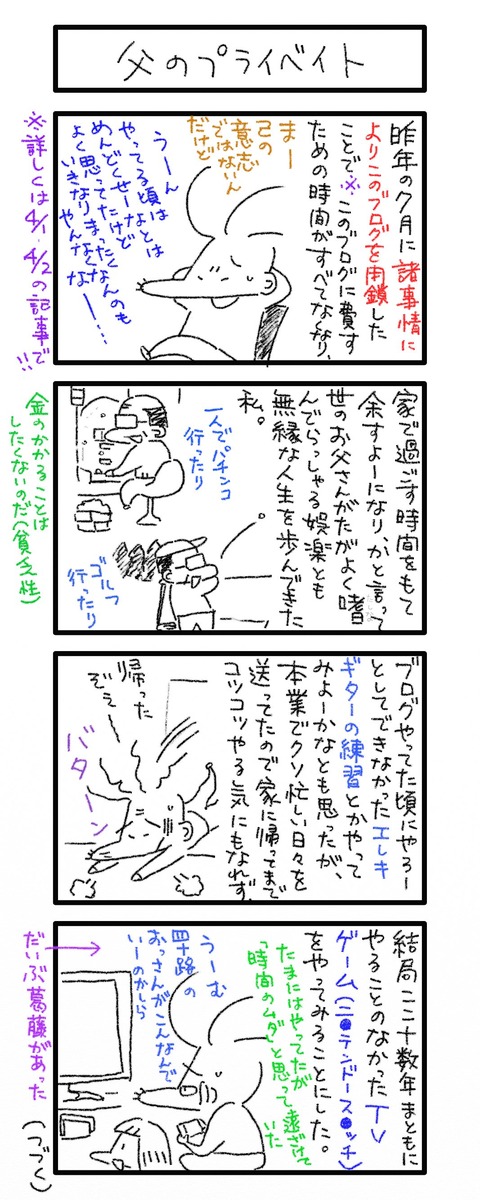 父のプライベイト
昨年の7月に諸事情に
よりこのブログを閉鎖した
ことで、※このブログに費す
ための時間がすべてなくなり、
まー
己の
意志
ではないん
だけど
うーん
やってる頃は
めんどくせーなとは
よく思ってたけど
いきなりまったくなんのも
やんなくな
ーー…
※詳しくは4/1・4/2の記事で!!
家で過ごす時間をもて
余すよーになり、かと言って
世のお父さんがたがよく嗜
んでらっしゃる娯楽とも
無縁な人生を歩んできた
私。
一人でパチンコ
行ったり
ゴルフ
行ったり
金のかかることは
したくないのだ(貧乏性)
ブログやってた頃にやろー
としてできなかったエレキ
ギターの練習とかやって
みよーかなとも思ったが、
本業でクソ忙しい日々を
送ってたので家に帰ってまで
コツコツやる気にもなれず、
帰った
ぞぇ〜
バターン
結局ここ十数年まともに
やることのなかったTV
ゲーム(ニ●テンドース●ッチ)
をやってみることにした。
たまにはやってたが
「時間のムダ」と思って遠ざけて
いた
うーむ
四十路の
おっさんがこんなんで
いーのかしら
だいぶ葛藤があった
(つづく)